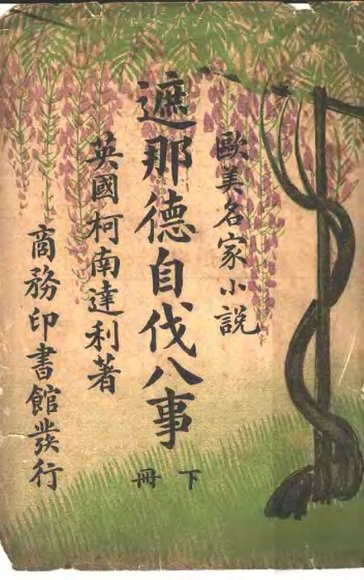 歐美名家小說
遮那德自伐八事
下冊
英國柯南達利著
商務印書館發行